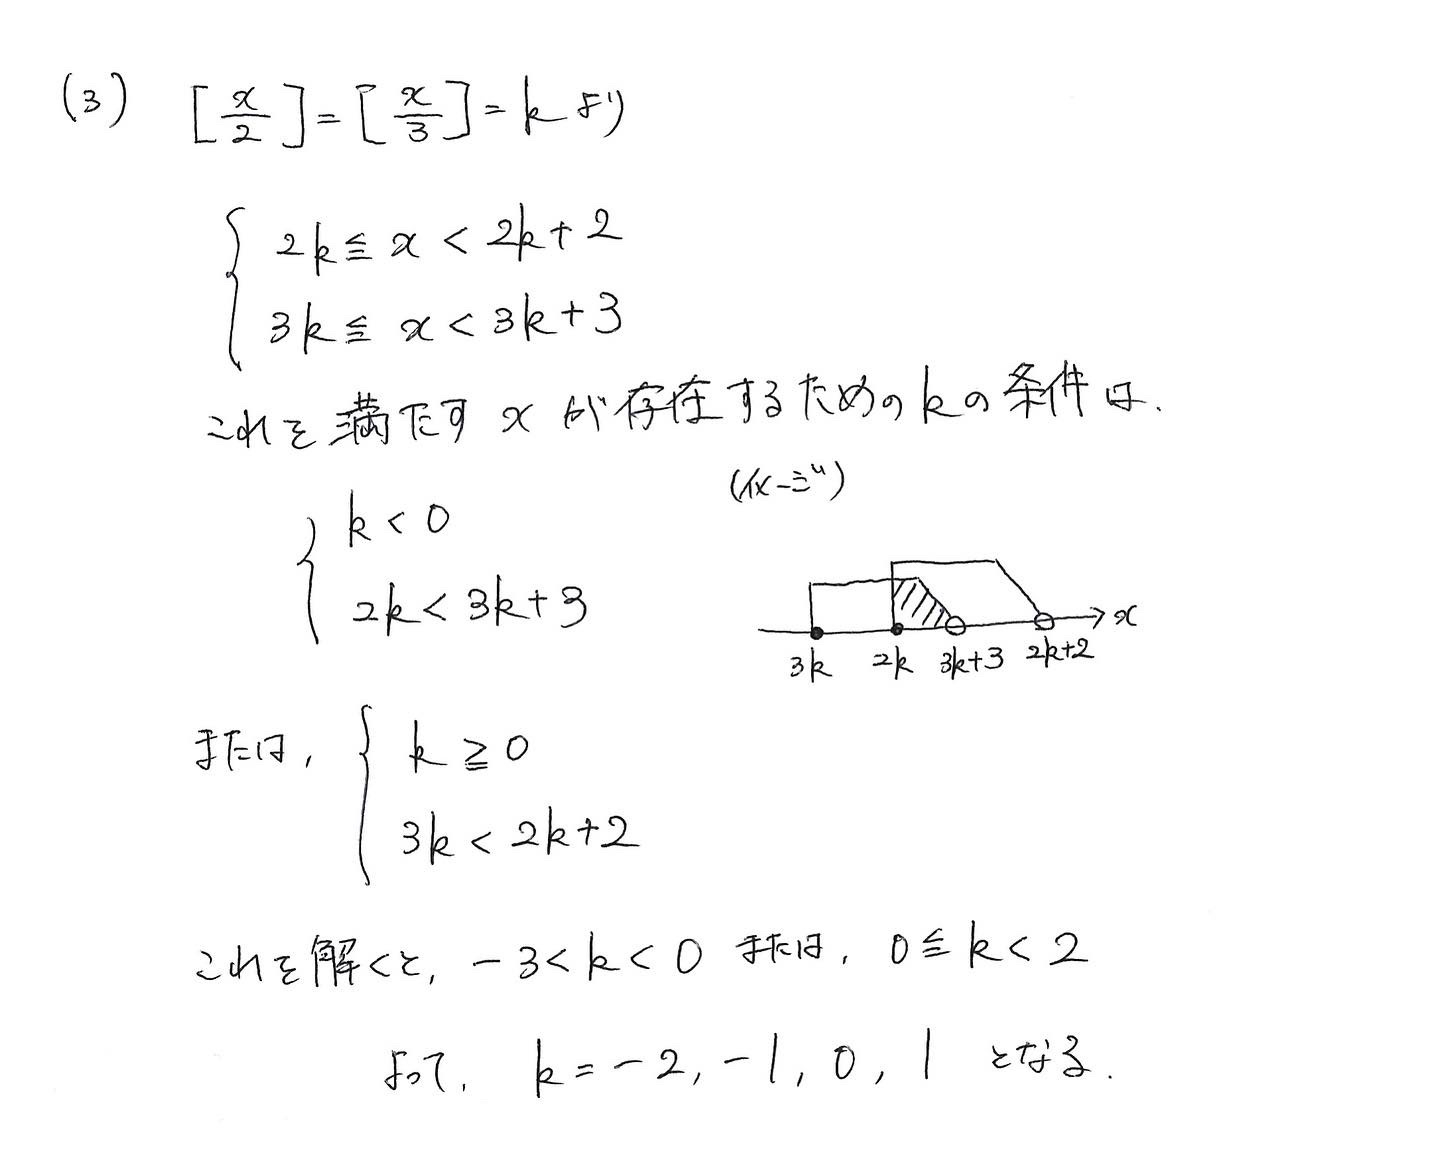 (3) [x/2] = [x/3] = k より
2k ≦ x < 2k+2
3k ≦ x < 3k+3
これを満たす x が存在するための k の条件は,
k < 0
2k < 3k+3
x
3k 2k 3k+3 2k+2
または, k ≧ 0
3k < 2k+2
これを解くと, -3 < k < 0 または, 0 ≦ k < 2
よって, k = -2, -1, 0, 1 となる.